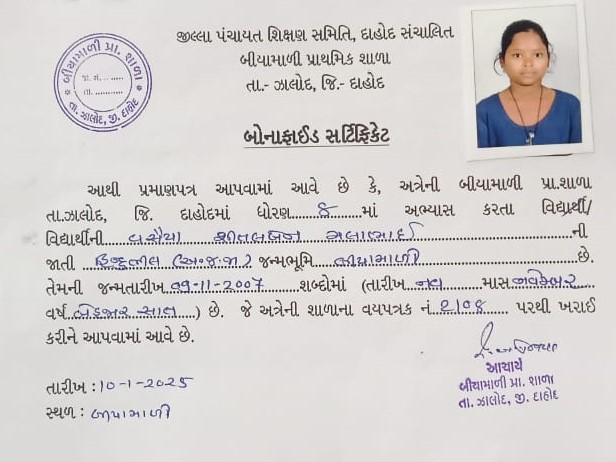 જીલ્લા પંચાયત શિક્ષણ સમિતિ, દાહોદ સંચાલિત
બીયામાળી પ્રાથમિક શાળા
તા.- ઝાલોદ, જિ.- દાહોદ
બીયામાળી પ્રા. શાળા
જા. નં. ........
તા. ............
તા. ઝાલોદ, જી. દાહોદ
બોનાફાઈડ સર્ટિફિકેટ
આથી પ્રમાણપત્ર આપવામાં આવે છે કે, અત્રેની બીયામાળી પ્રા.શાળા
તા.ઝાલોદ, જિ. દાહોદમાં ધોરણ....8......માં અભ્યાસ કરતા વિદ્યાર્થી/
વિદ્યાર્થીની વસૈયા શીતલબેન ની
જાતી હિન્દુભીલ (અ.જ.જા) જન્મભૂમિ બીયામાળી છે.
તેમની જન્મતારીખ 09-11-2007 શબ્દોમાં (તારીખ નવ માસ નવેમ્બર
વર્ષ બેહજાર સાત) છે. જે અત્રેની શાળાના વયપત્રક નં. 2108 પરથી ખરાઈ
કરીને આપવામાં આવે છે.
તારીખ : 10-1-2025
સ્થળ : બીયામાળી
આચાર્ય
બીયામાળી પ્રા. શાળા
તા. ઝાલોદ, જી. દાહોદ